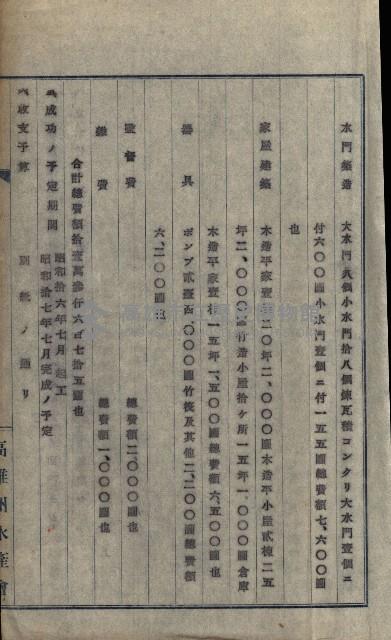 水門築造　大水門八個小水門拾八個煉瓦積コンクリ大水門壹個ニ
付六〇〇圓小水門壹個ニ付一五五圓總費額七、六〇〇圓
也
家屋建築　木造平家壹棟二〇坪二、〇〇〇圓木造平小屋貳棟二五
坪二、〇〇〇圓竹造小屋拾ケ所一五坪一、〇〇〇圓倉庫
木造平家壹棟一五坪一、五〇〇圓總費額六、五〇〇圓也
器具　ポンプ貳臺四、〇〇〇圓竹筏及其他二、二〇〇圓總費額
六、二〇〇圓也
監督費　總費額二〇〇〇圓也
雜費　總費額一、〇〇〇圓也
合計總費額拾壹萬參仟六百七拾五圓也
成功ノ予定期間　昭和拾六年七月起工
昭和拾七年七月完成ノ予定
收支予算　別紙ノ通リ
高雄州水產會